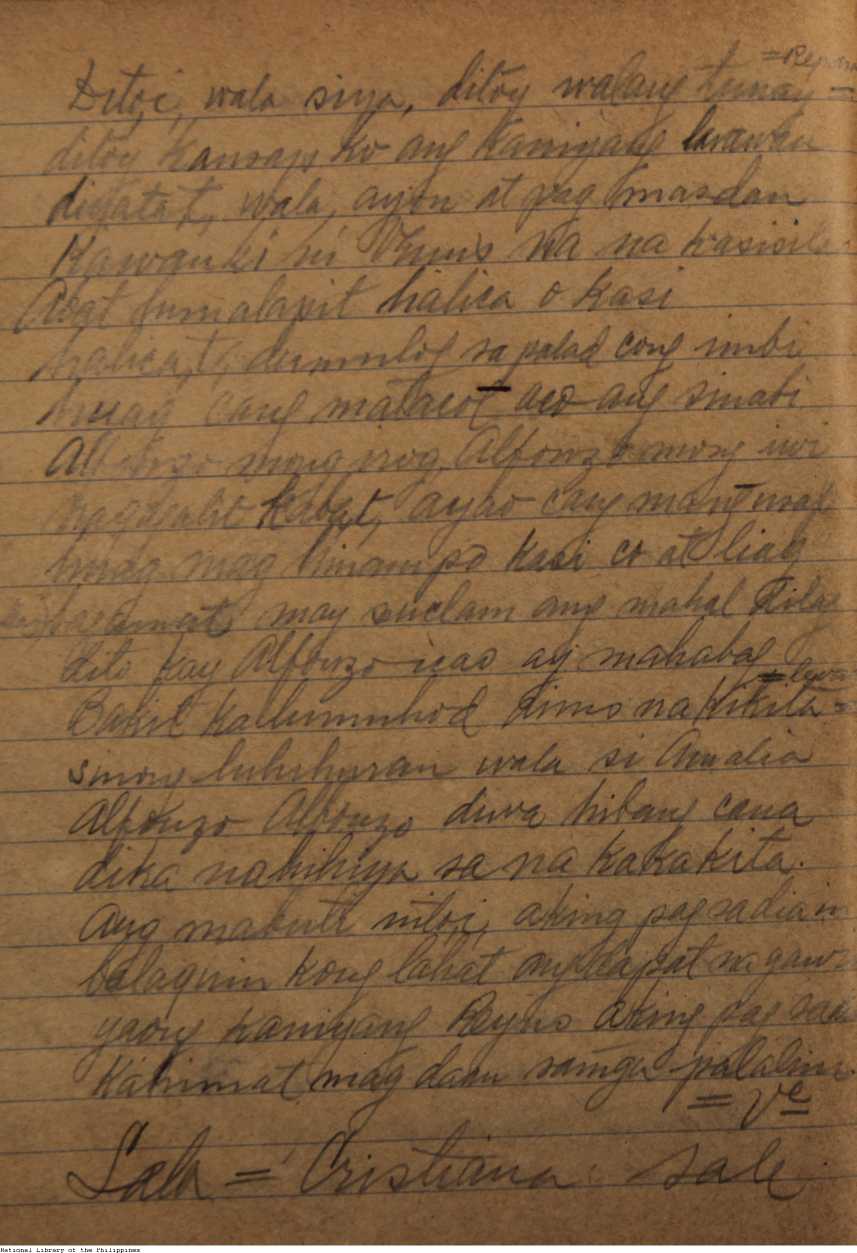 Ditoi, wala siya, ditoy walang tunay
ditoy kaurap ko ang kaniyang larawan
dikatat, wala, ayon at pag masdan
Kawanki ni Venus na na kasisila
halica o kasi
halica,t, dumulog sa palad cong imbi
huag cang matacot aco ang sinabi
Alfonzo mong irog Alfonzo mong iwi
ayao cang
huag mag hinampo kasi co at liag
may suclam ang mahal
dito kay Alfonzo icao ay mahabag
Bakit ka lumuhod dimo na kikita
sinong luluhuran wala si Amalia
Alfonzo Alfonzo diwa hibang cana
dika nahihiya sa na kakakita.
Ang mabuti nitoi, aking pag sadiain
balaquin kong lahat ang dapat na gawin
yaong kaniyang Reyno aking pag
Kahimat mag daan sa mga palalim.
= Ve
Sala = Cristiana sale
National Library of the Philippines